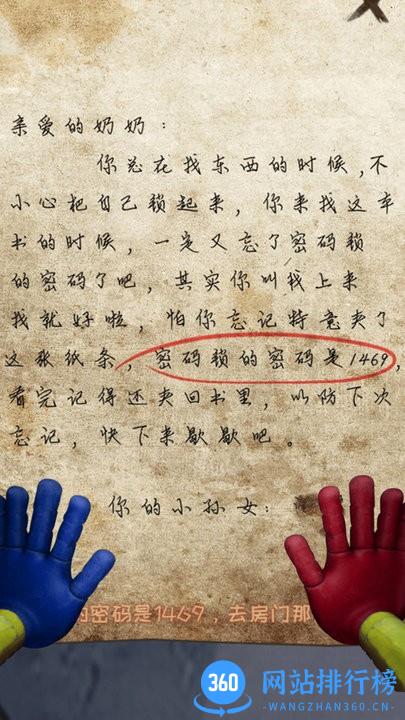 亲爱的奶奶：
你总在找东西的时候，不
小心把自己锁起来，你来找这本
书的时候，一定又忘了密码锁
的密码了吧，其实你叫我上来
找就好啦，怕你忘记特意夹了
这张纸条，密码锁的密码是1469，
看完记得还夹回书里，以防下次
忘记，快下来歇歇吧。
你的小孙女：
的密码是1469，去房门那
360 网站排行榜
-WANGZHAN360.CN-